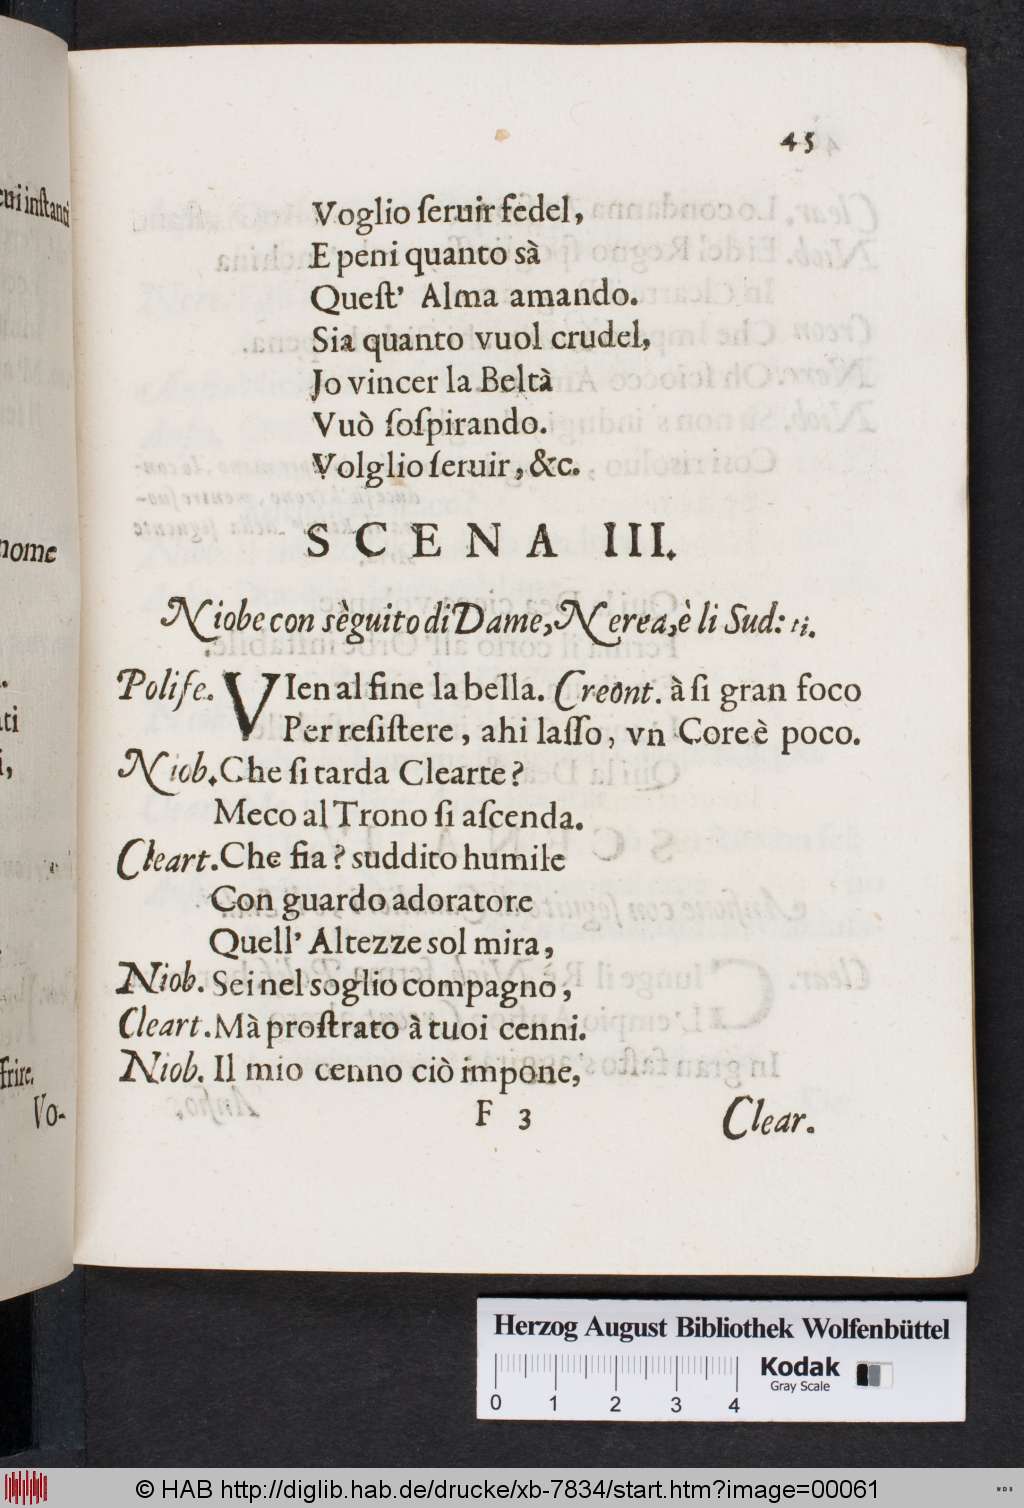 45
Voglio ſeruir fedel,
E peni quanto sà
Queſt' Alma amando.
Sia quanto vuol crudel,
Jo vincer la Beltà
Vuò ſoſpirando.
Volglio ſeruir, &c.
SCENA III.
Niobe con sèguito di Dame, Nerea, è li Sud: ti.
Poliſe. VIen al fine la bella. Creont. à ſi gran foco
Per reſiſtere, ahi laſſo, vn Core è poco.
Niob. Che ſi tarda Clearte?
Meco al Trono ſi aſcenda.
Cleart. Che fia? suddito humile
Con guardo adoratore
Quell' Altezze sol mira,
Niob. Sei nel soglio compagno,
Cleart. Mà proſtrato à tuoi cenni.
Niob. Il mio cenno ciò impone,
F 3
Clear.
nome
frire.
Vo-
Herzog August Bibliothek Wolfenbüttel
0 1 2 3 4
Kodak
Gray Scale
© HAB http://diglib.hab.de/drucke/xb-7834/start.htm?image=00061